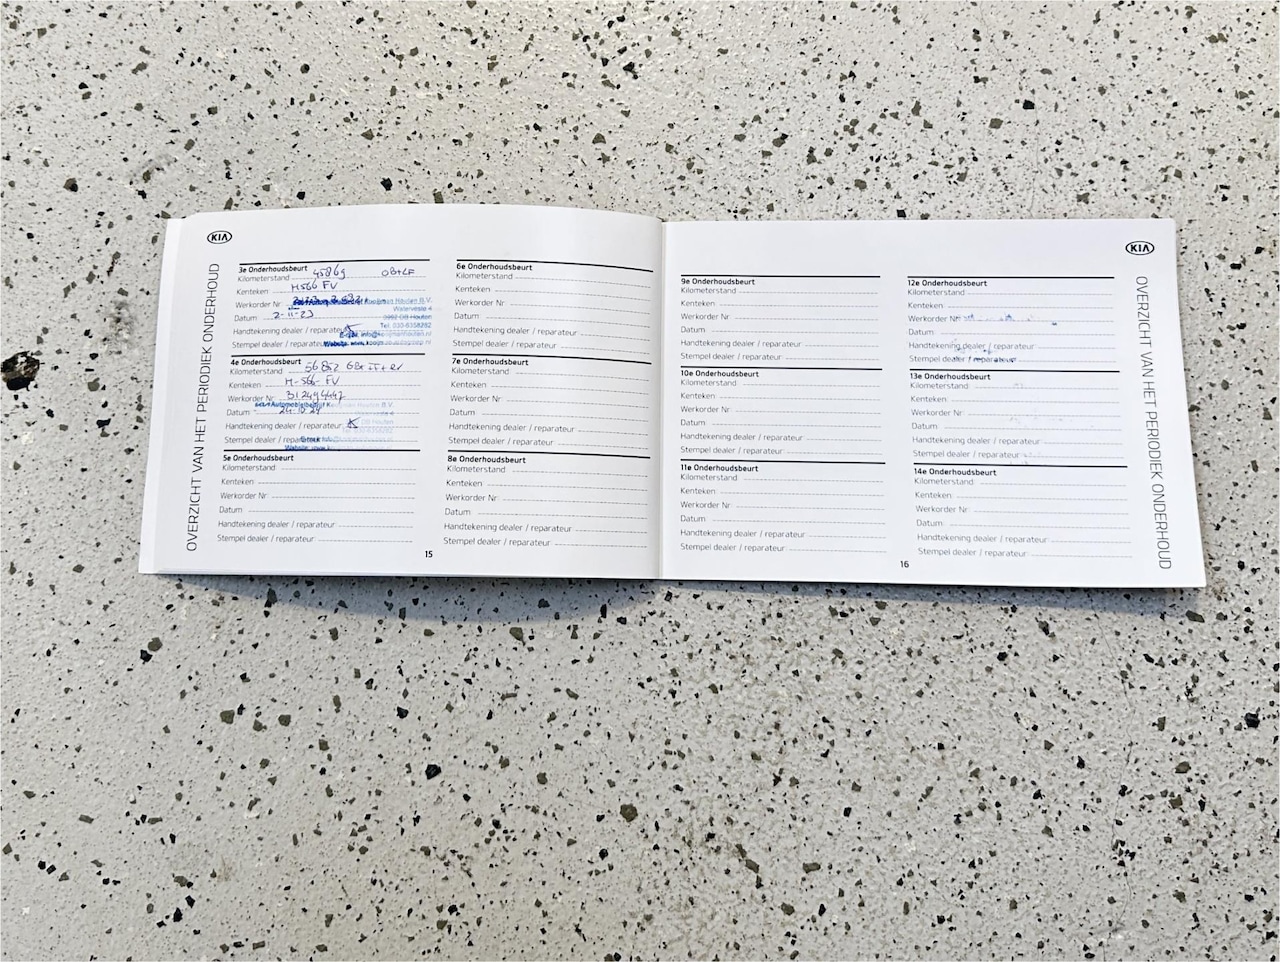 KIA
OVERZICHT VAN HET PERIODIEK ONDERHOUD
3e Onderhoudsbeurt
Kilometerstand 45869
Kenteken H566 FV
Werkorder Nr.
Datum 2-11-23
Handtekening dealer / reparateur
Stempel dealer / reparateur
Houten B.V.
Waterveste 4
3992 DB Houten
Tel: 030-6358282
4e Onderhoudsbeurt
Kilometerstand
Kenteken H-566-FV
Werkorder Nr.
Automobielbedrijf Houten B.V.
Datum 24-10-24
DB Houten
Handtekening dealer / reparateur
Stempel dealer /
5e Onderhoudsbeurt
Kilometerstand
Kenteken
Werkorder Nr.
Datum
Handtekening dealer / reparateur
Stempel dealer / reparateur
6e Onderhoudsbeurt
Kilometerstand
Kenteken
Werkorder Nr.
Datum
Handtekening dealer / reparateur
Stempel dealer / reparateur
7e Onderhoudsbeurt
Kilometerstand
Kenteken
Werkorder Nr.
Datum
Handtekening dealer / reparateur
Stempel dealer / reparateur
8e Onderhoudsbeurt
Kilometerstand
Kenteken
Werkorder Nr.
Datum
Handtekening dealer / reparateur
Stempel dealer / reparateur
15
KIA
OVERZICHT VAN HET PERIODIEK ONDERHOUD
9e Onderhoudsbeurt
Kilometerstand
Kenteken
Werkorder Nr.
Datum
Handtekening dealer / reparateur
Stempel dealer / reparateur
10e Onderhoudsbeurt
Kilometerstand
Kenteken
Werkorder Nr.
Datum
Handtekening dealer / reparateur
Stempel dealer / reparateur
11e Onderhoudsbeurt
Kilometerstand
Kenteken
Werkorder Nr.
Datum
Handtekening dealer / reparateur
Stempel dealer / reparateur
12e Onderhoudsbeurt
Kilometerstand
Kenteken
Werkorder Nr.
Datum
Handtekening dealer / reparateur
Stempel dealer / reparateur
13e Onderhoudsbeurt
Kilometerstand
Kenteken
Werkorder Nr.
Datum
Handtekening dealer / reparateur
Stempel dealer / reparateur
14e Onderhoudsbeurt
Kilometerstand
Kenteken
Werkorder Nr.
Datum
Handtekening dealer / reparateur
Stempel dealer / reparateur
16